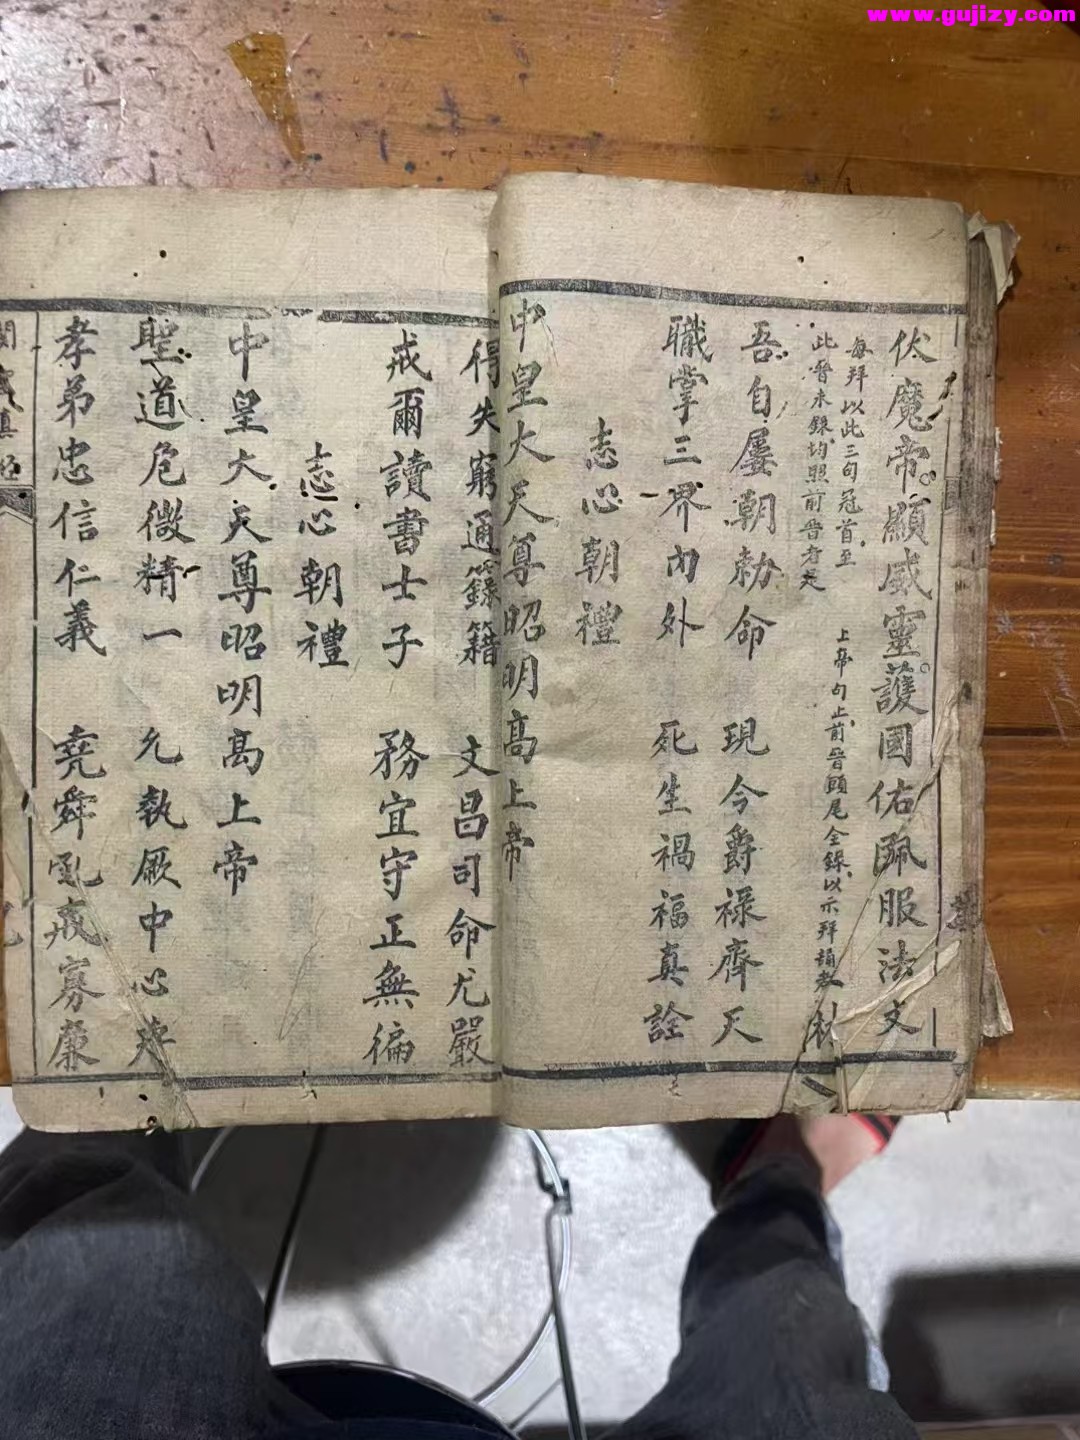 www.gujizy.com
伏魔帝顯威靈護國佑珮服法文
每拜以此三句冠首至
上帝句止前晉顧尾全錄以示拜誦
此晉未錄均照前晉者是
吾自屢朝勅命 現今爵祿齊天
職掌三界內外 死生禍福真詮
志心朝禮
中皇大天尊昭明高上帝
得失窮通籙籍 文昌司命尤嚴
戒爾讀書士子 務宜守正無偏
志心朝禮
中皇大天尊昭明高上帝
聖道危微精一 允執厥中心
孝弟忠信仁義 堯舜戒寡廉